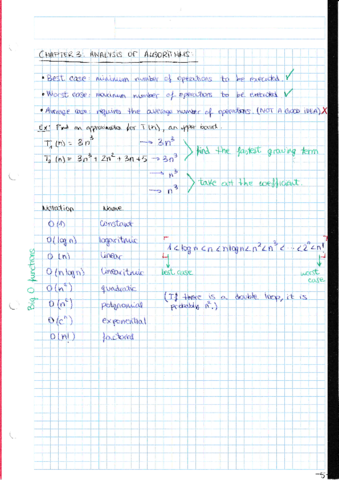 CHAPTER 3: ANALYSIS OF ALGORITHMS
• Best case: minimum number of operations to be executed ✓
• Worst case: maximum number of operations to be executed ✓
• Average case: requires the average number of operations. (NOT A GOOD IDEA) X
Ex: Find an approximation for T(n), an upper bound.
T₁(n) = 3n³ → 3n³
T₂(n) = 3n³ + 2n² + 3n + 5 → 3n³
find the fastest growing term
→ n³
→ n³
take off the coefficient
Notation Name
O(1) constant
O(log n) logaritmic
O(n) linear
O(n log n) linearitmic
O(n²) quadratic
O(nᶜ) polynomial
O(cⁿ) exponential
O(n!) factorial
Big O functions
1 < log n < n < n log n < n² < n³ < ... < 2ⁿ < n!
best case worst case
(If there is a double loop, it is
probably n².)